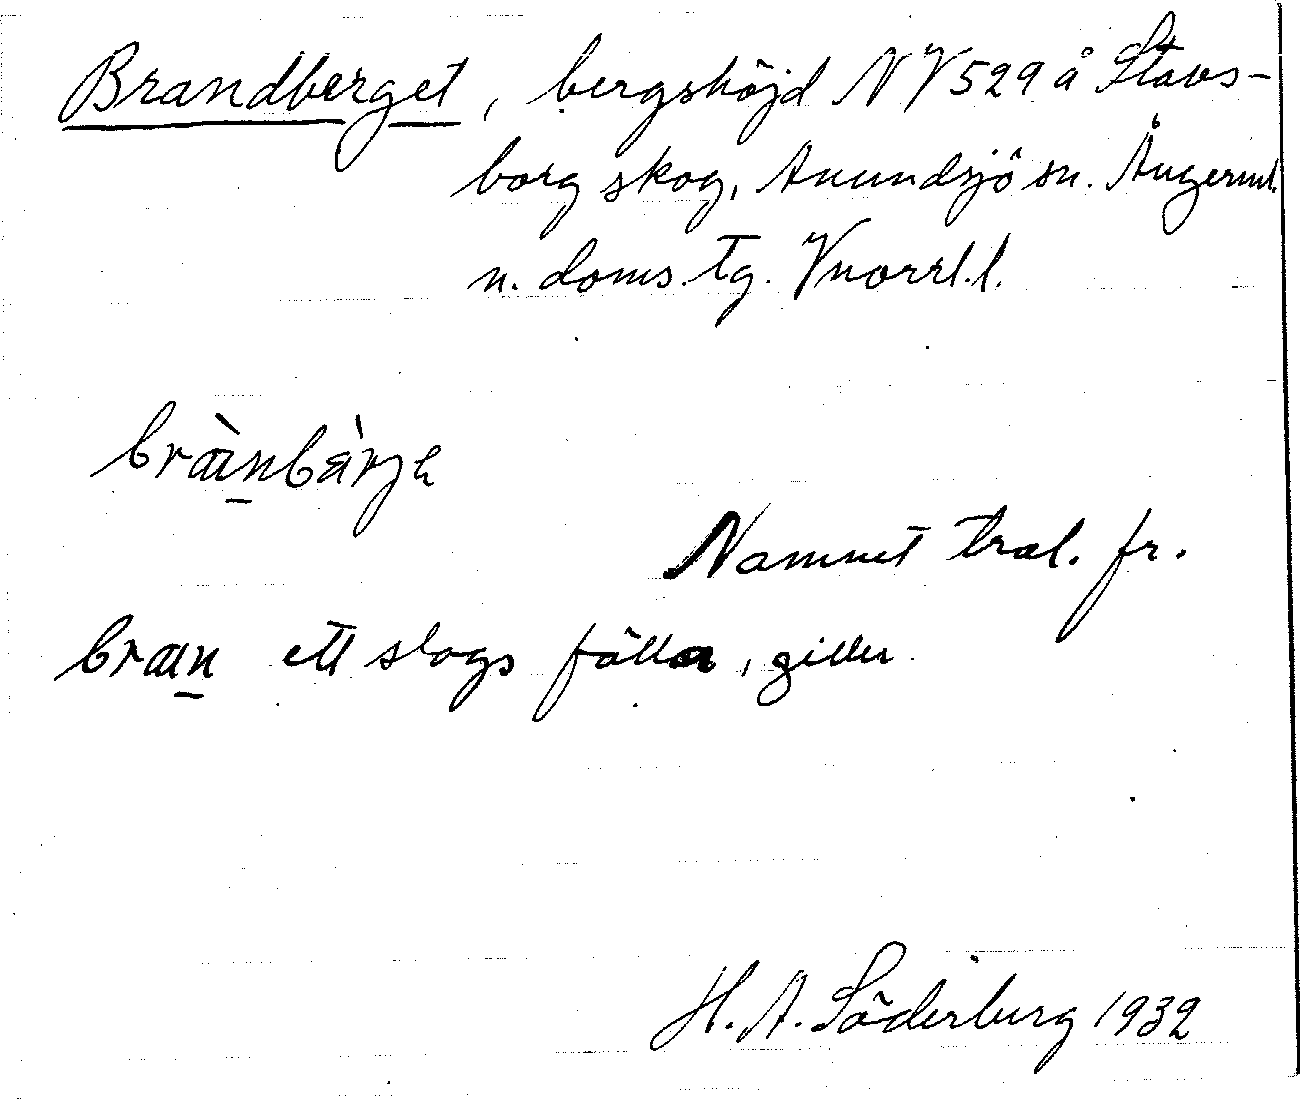 Brandberget, bergshöjd NV 529 å Stavs-
borg skog, Anundsjö sn. Ångerml.
n. doms. tg. Vnorrl. l.
bràn̲bàrje
Namnet tral. fr.
bran̲ ett slags fälla, giller
H. A. Söderberg 1932